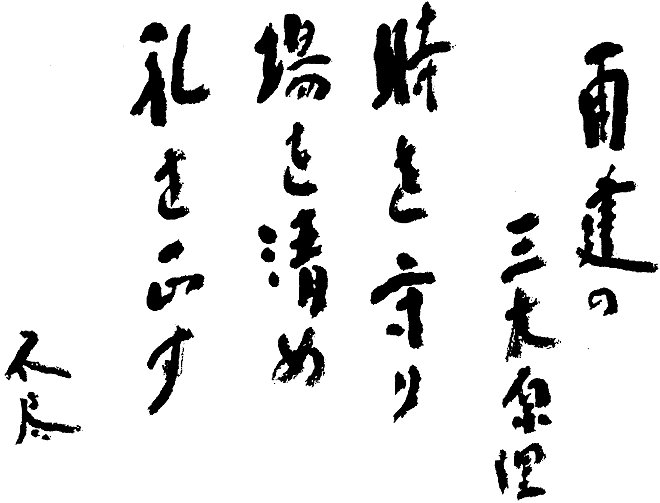 再建の
三大原理
時を守り
場を清め
礼を正す
不尽